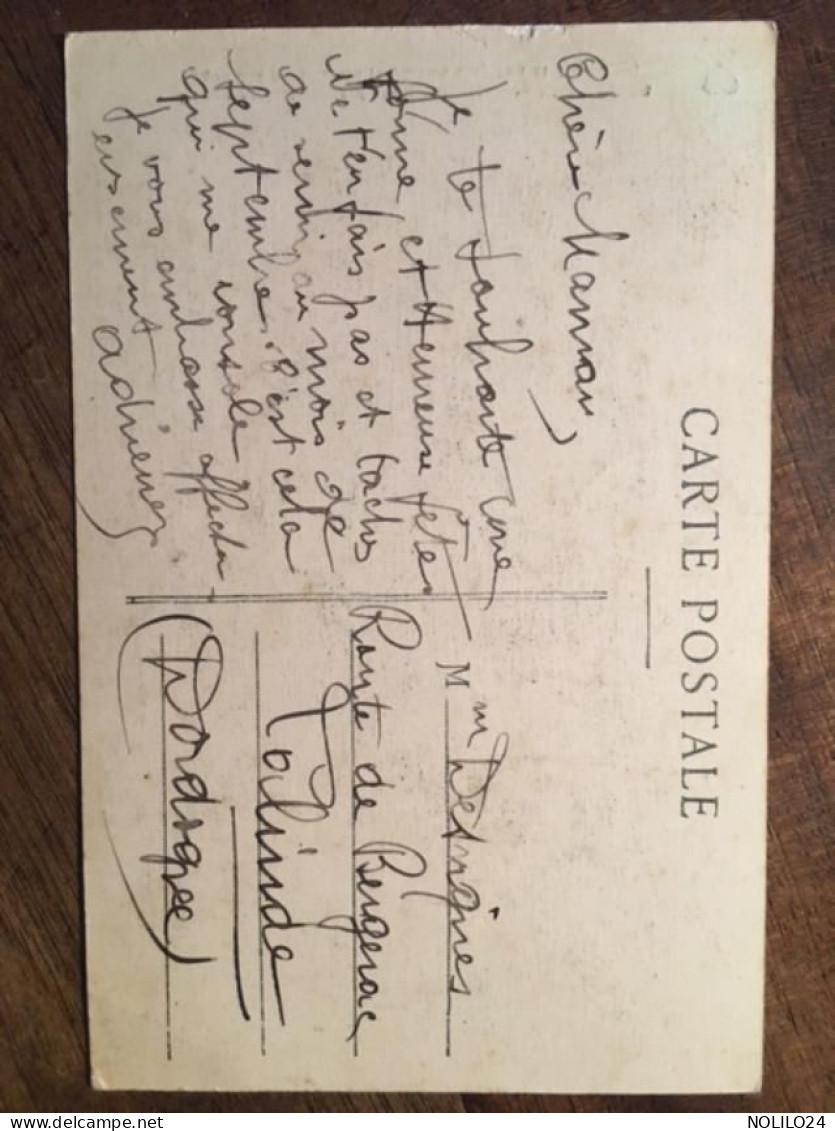 CARTE POSTALE
Chère Maman,
Je te souhaite une
bonne et Heureuse fête
Ne t'en fais pas et tache
de venir au mois de
septembre. C'est cela
qui me console
Je vous embrasse affectu
eusement
Mm
Route de Bergerac
Lalinde
(Dordogne)
NOLILO24